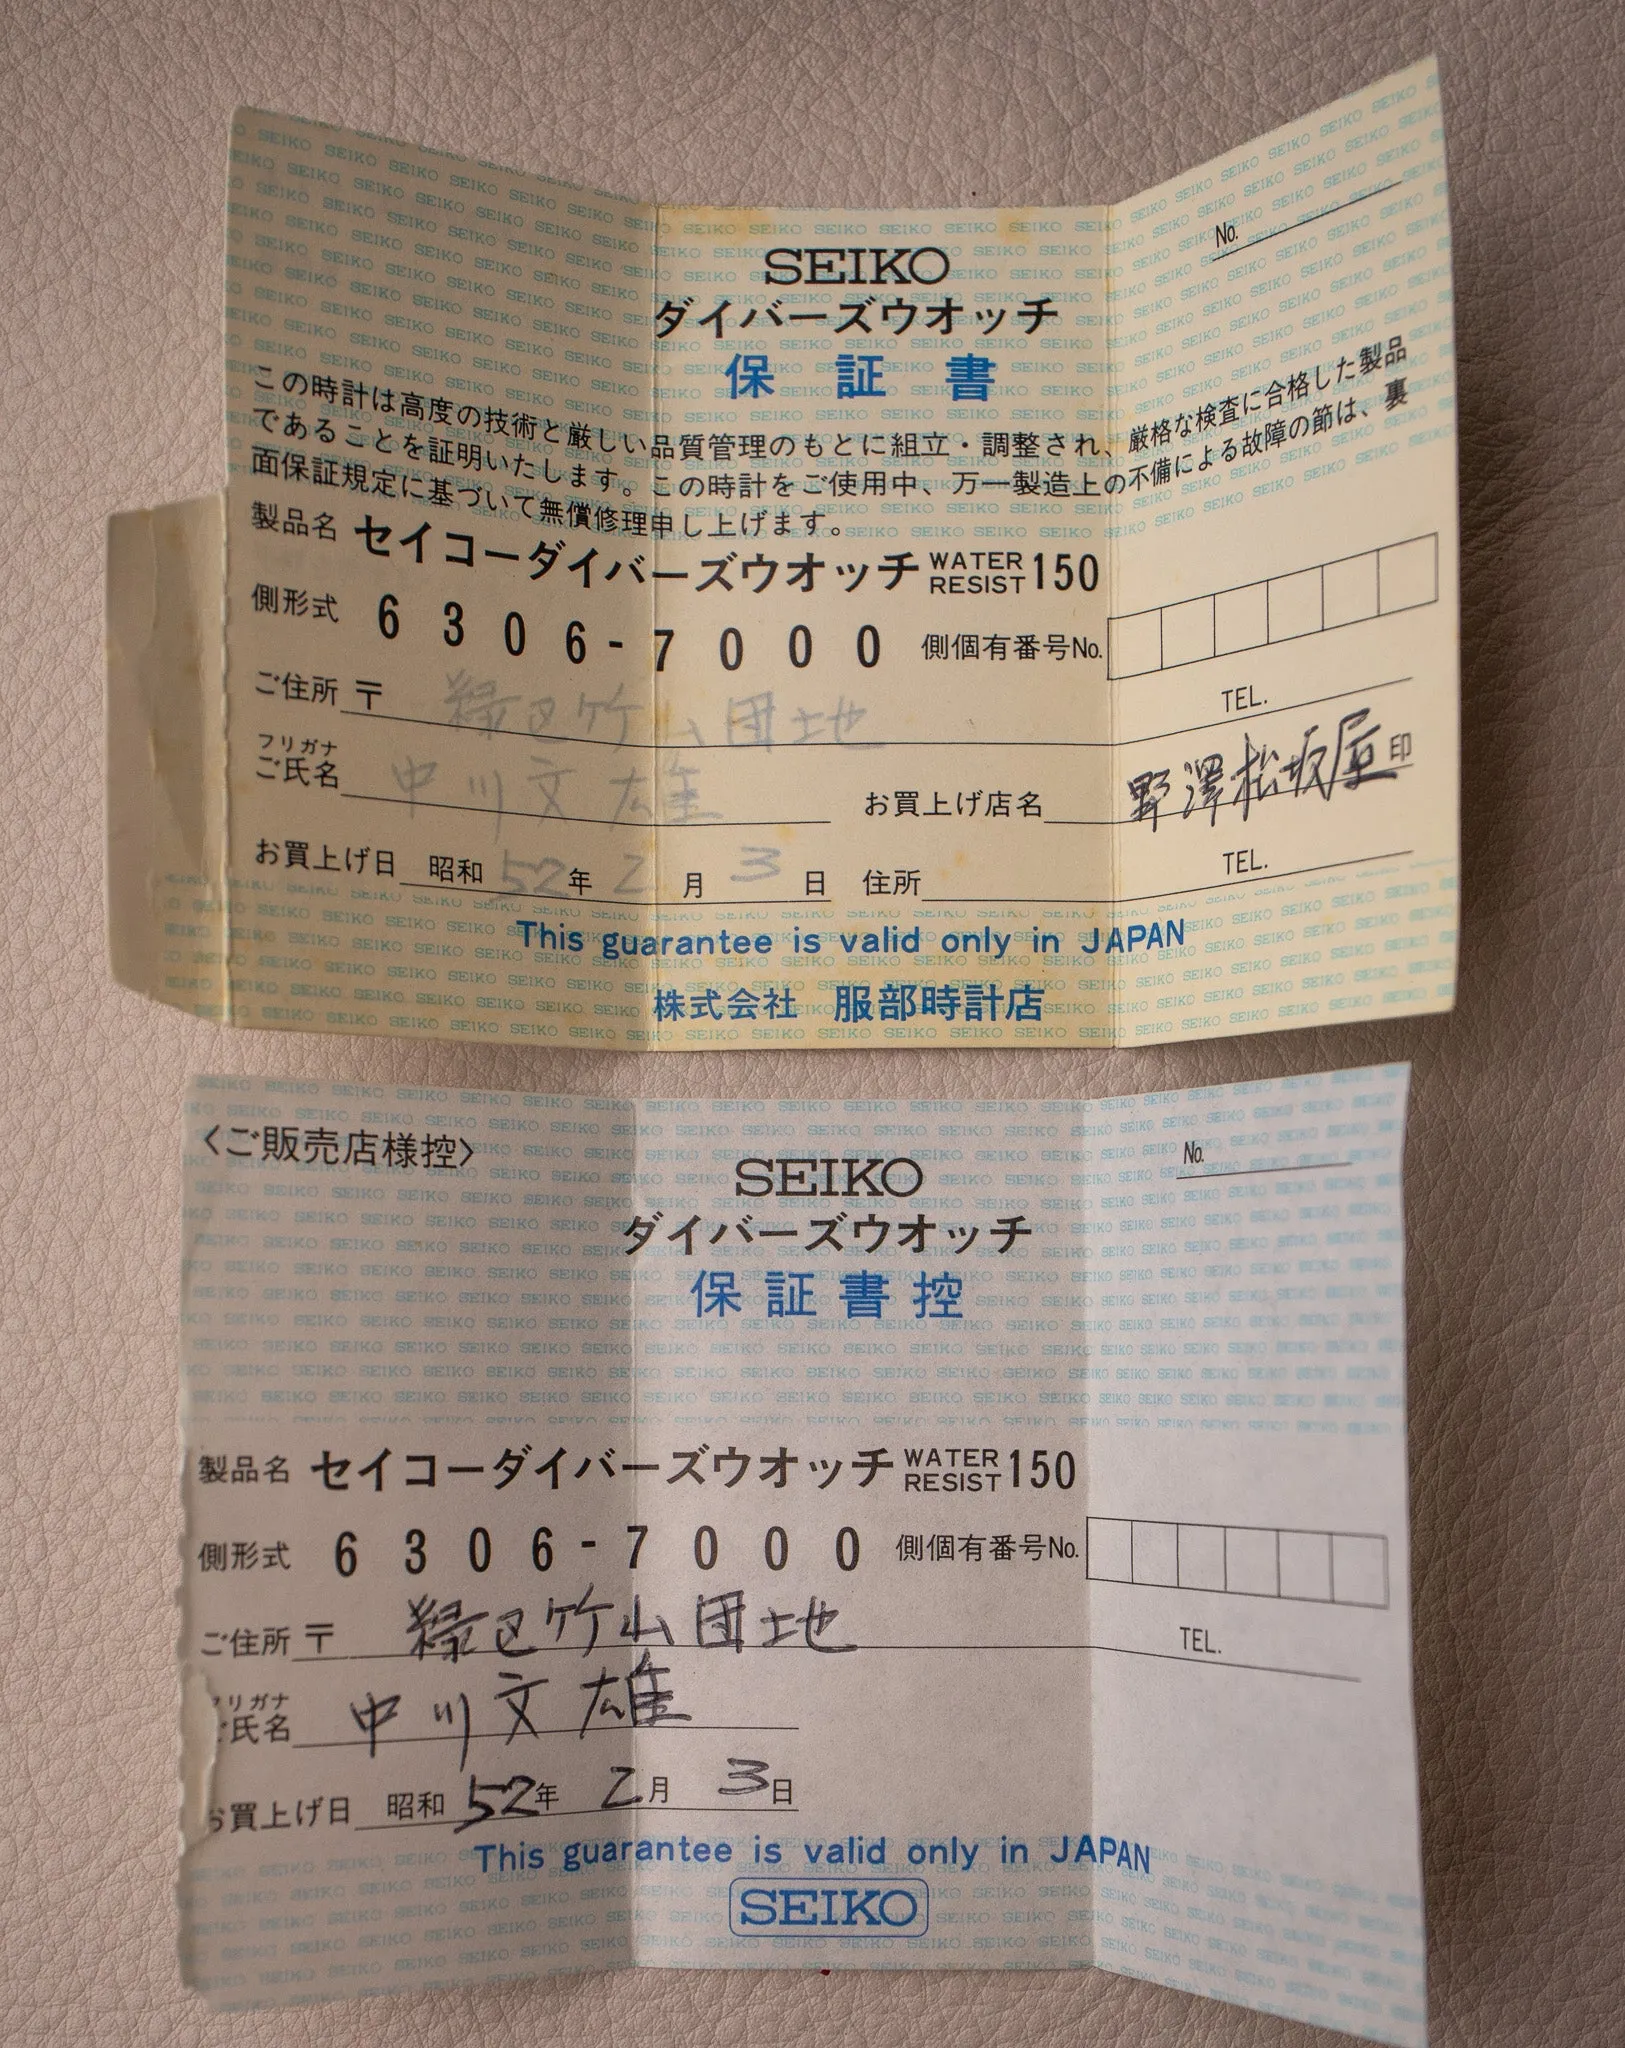 No.
SEIKO
ダイバーズウオッチ
保証書
この時計は高度の技術と厳しい品質管理のもとに組立・調整され、厳格な検査に合格した製品
であることを証明いたします。この時計をご使用中、万一製造上の不備による故障の節は、裏
面保証規定に基づいて無償修理申し上げます。
製品名 セイコーダイバーズウオッチ WATER RESIST 150
側形式 6306-7000 側個有番号No.
ご住所 〒 緑区竹山団地 TEL.
フリガナ
ご氏名 中川文雄 お買上げ店名 野澤松坂屋 印
お買上げ日 昭和 52年 2月 3日 住所 TEL.
This guarantee is valid only in JAPAN
株式会社 服部時計店
〈ご販売店様控〉
No.
SEIKO
ダイバーズウオッチ
保証書控
製品名 セイコーダイバーズウオッチ WATER RESIST 150
側形式 6306-7000 側個有番号No.
ご住所 〒 緑区竹山団地 TEL.
フリガナ
ご氏名 中川文雄
お買上げ日 昭和 52年 2月 3日
This guarantee is valid only in JAPAN
SEIKO